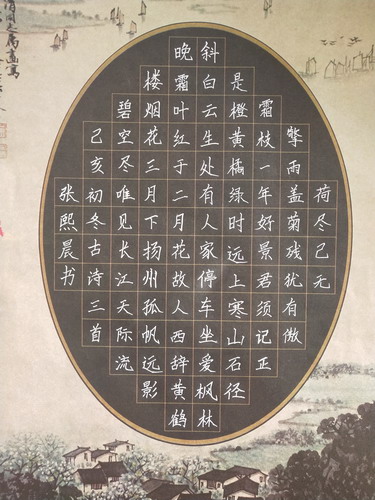 荷尽已无
擎雨盖菊残犹有傲
霜枝一年好景君须记正
是橙黄橘绿时远上寒山石径
斜白云生处有人家停车坐爱枫林
晚霜叶红于二月花故人西辞黄鹤
楼烟花三月下扬州孤帆远影
碧空尽唯见长江天际流
己亥初冬古诗三首
张熙晨书